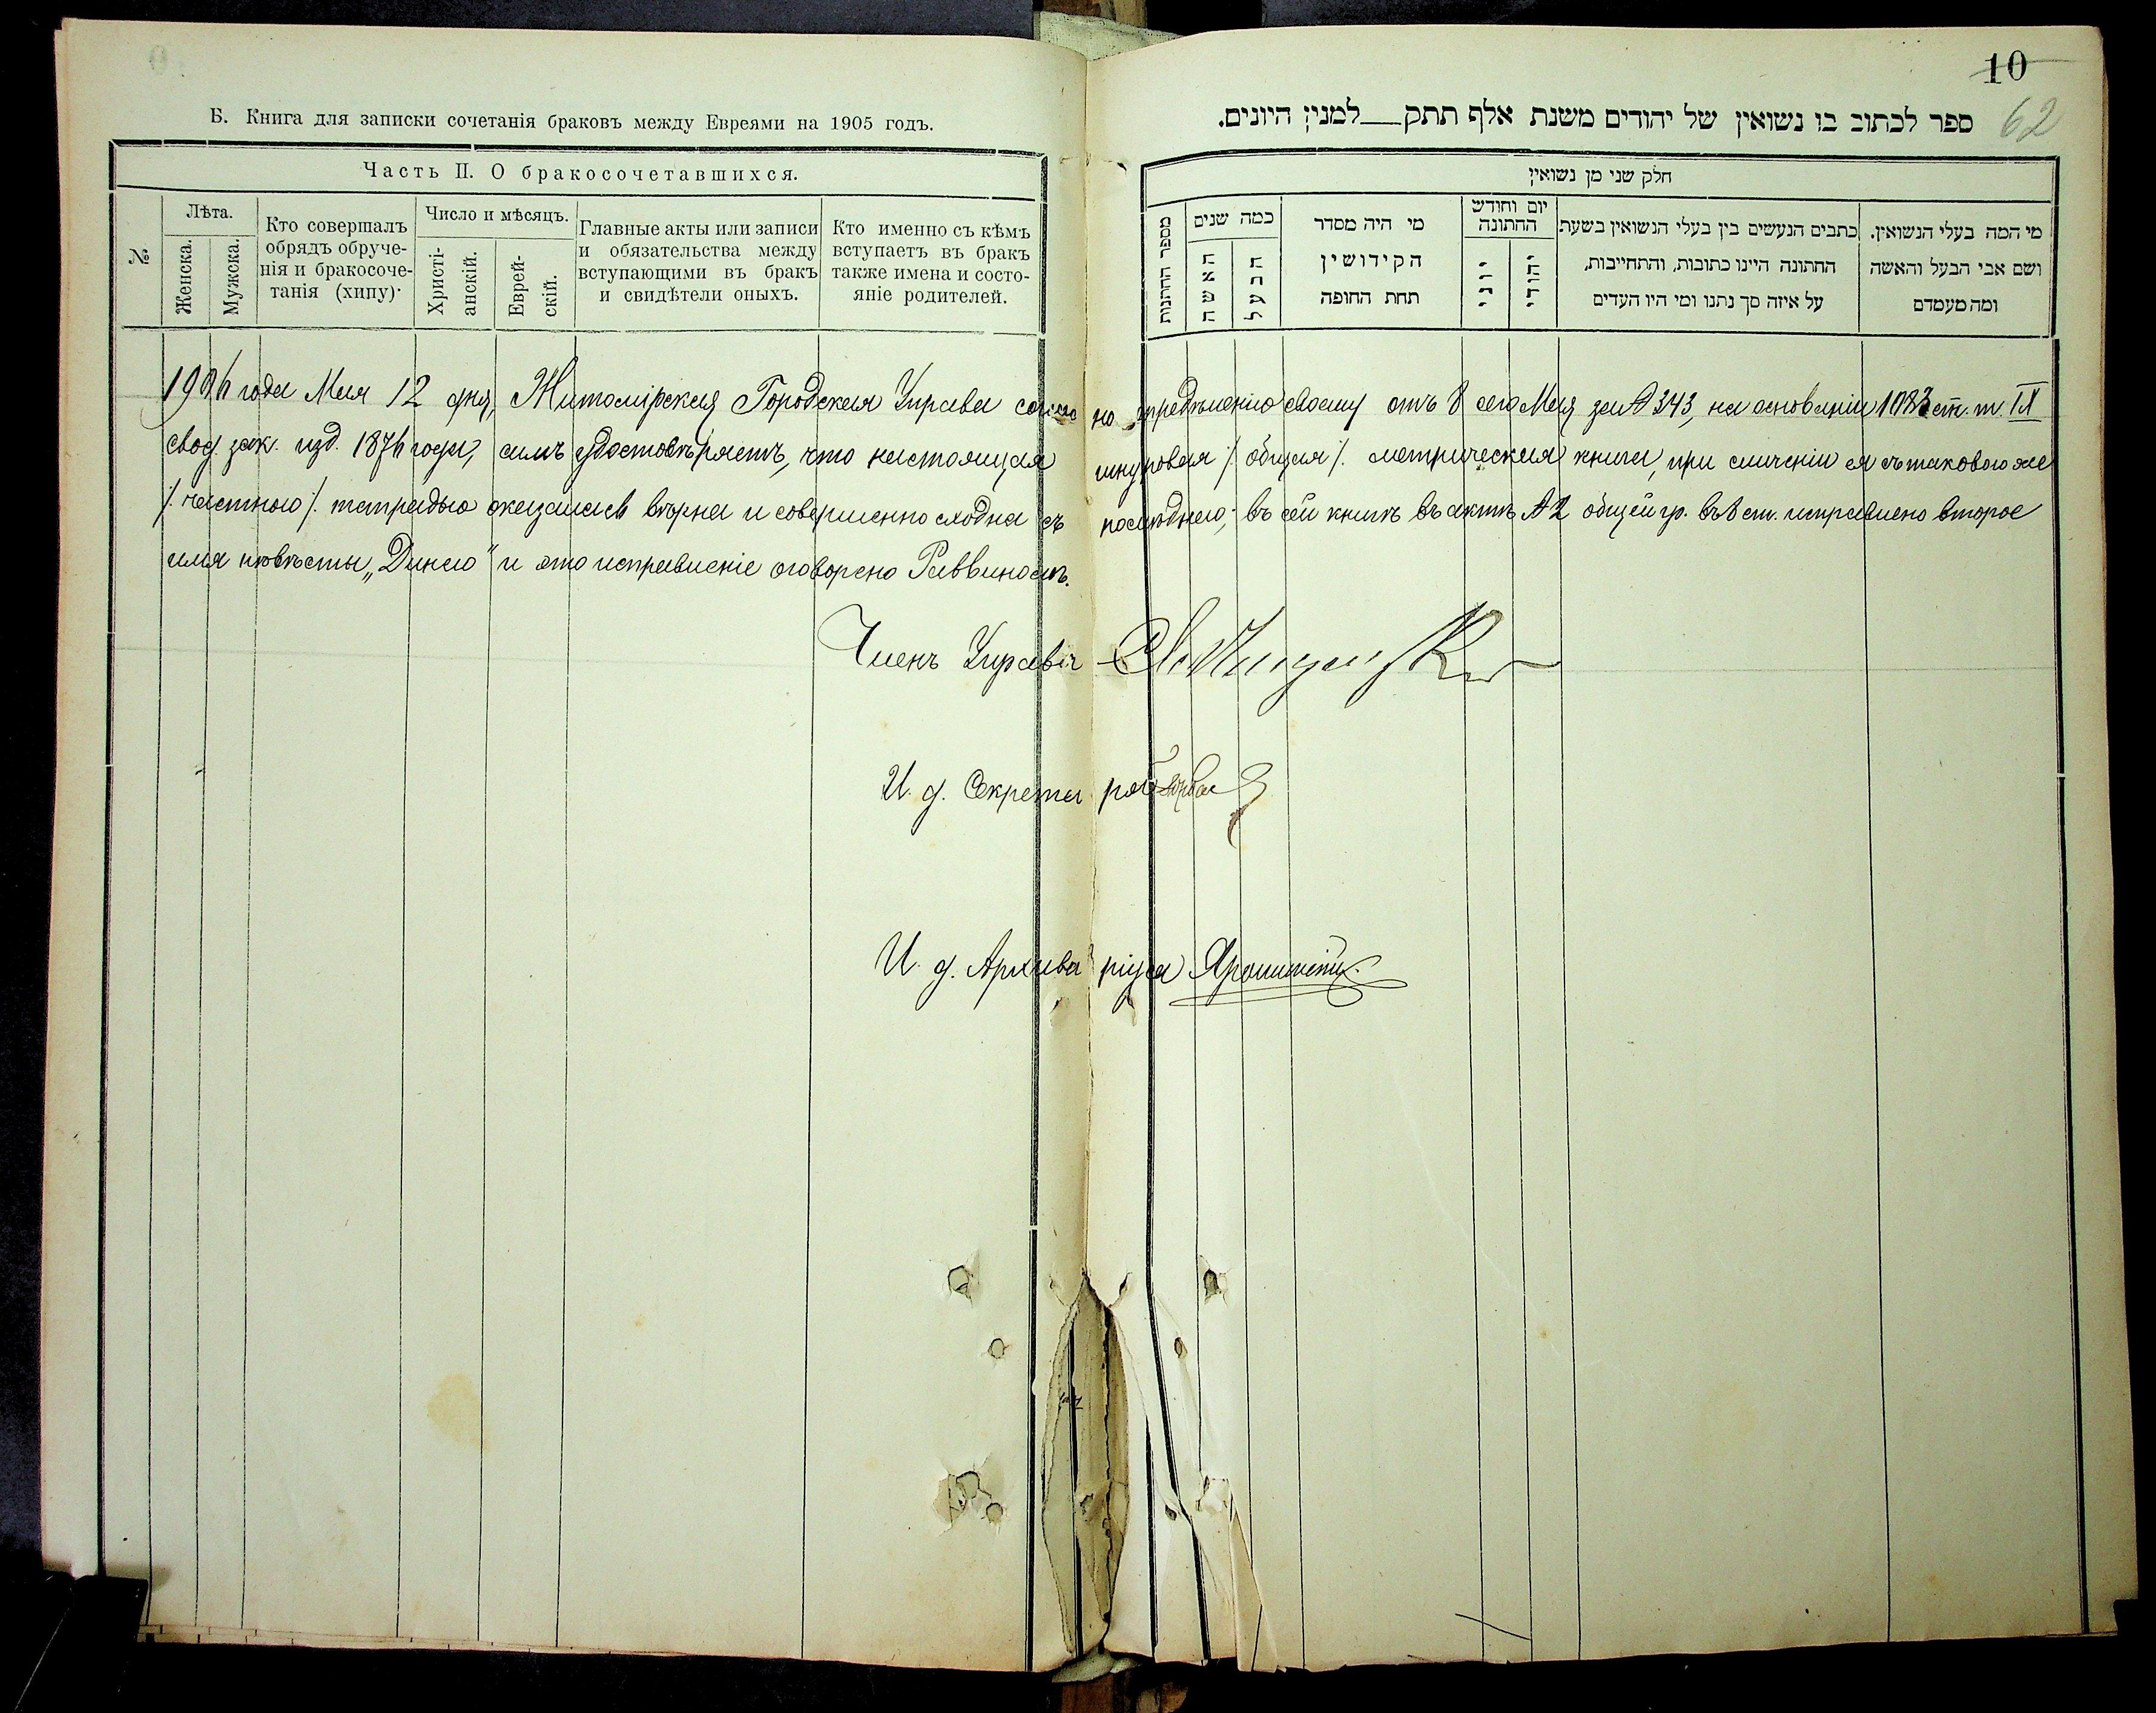 10
62
Б. Книга для записки сочетанія браковъ между Евреями на 1905 годъ.
ספר לכתוב בו נשואין של יהודים משנת אלף תתק__למנין היונים.
Часть II. О бракосочетавшихся.
№
Лѣта.
Женска.
Мужска.
Кто совершалъ
обрядъ обруче-
нія и бракосоче-
танія (хипу)·
Число и мѣсяцъ.
Христі-
анскій.
Еврей-
скій.
Главные акты или записи
и обязательства между
вступающими въ бракъ
и свидѣтели оныхъ.
Кто именно съ кѣмъ
вступаетъ въ бракъ
также имена и состо-
яніе родителей.
חלק שני מן נשואין
מי המה בעלי הנשואין.
ושם אבי הבעל והאשה
ומה מעמדם
כתבים הנעשים בין בעלי הנשואין בשעת
החתונה היינו כתובות, והתחייבות,
על איזה סך נתנו ומי היו העדים
יום וחודש
החתונה
יהודי
יוני
מי היה מסדר
הקידושין
תחת החופה
כמה שנים
הבעל
האשה
מספר החתנות
1906 года Мая 12 дня, Житомірская Городская Управа соглас но опредѣленію своему отъ 8 сего Мая за № 343, на основаніи 1083 ст. т. IX
свод. зак. изд. 1876 года, симъ удостовѣряетъ, что настоящая шнуровая /. общая /. метрическая книга, при сличеніи ея съ таковою же
/. частною /. тетрадью оказалась вѣрна и совершенно сходна съ послѣднею; въ сей книгѣ въ актѣ № 2 общей гр. въ 8 ст. исправлено второе
имя невѣсты „Динею" и это исправленіе оговорено Раввиномъ.
Членъ Управы
И. д. Секретаря
И. д. Архиваріуса